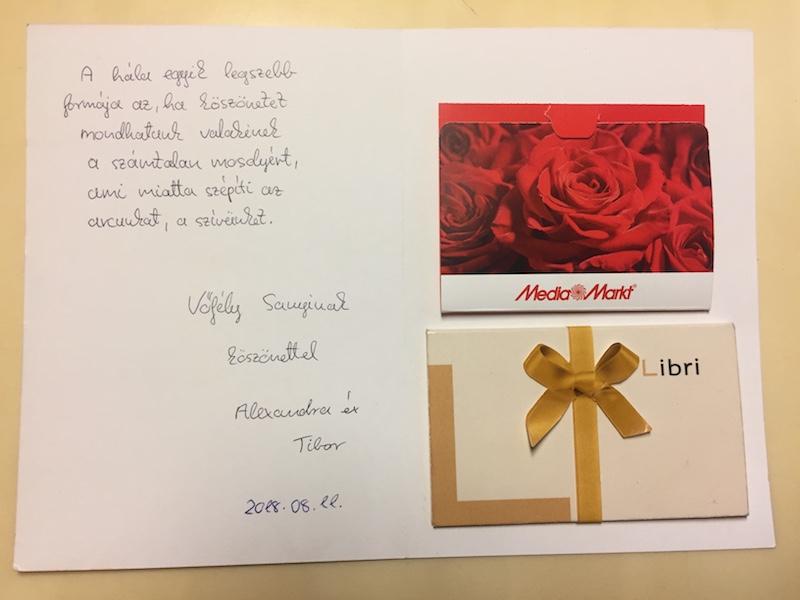 A hála egyik legszebb
formája az, ha köszönetet
mondhatunk valakinek
a számtalan mosolyért,
ami miatta szépíti az
arcunkat, a szívünket.
Vőfély Samginak
köszönettel
Alexandra és
Tibor
2018.08.11.
Media Markt
Libri